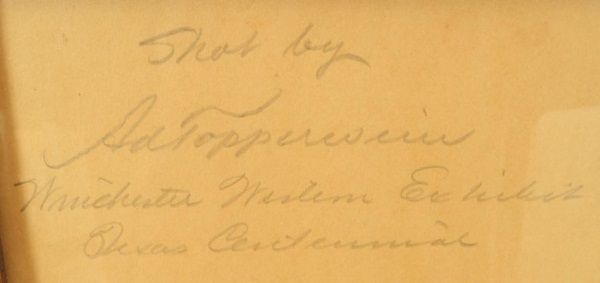 Shot by
Ad Topperwein
Winchester Western Exhibit
Texas Centennial